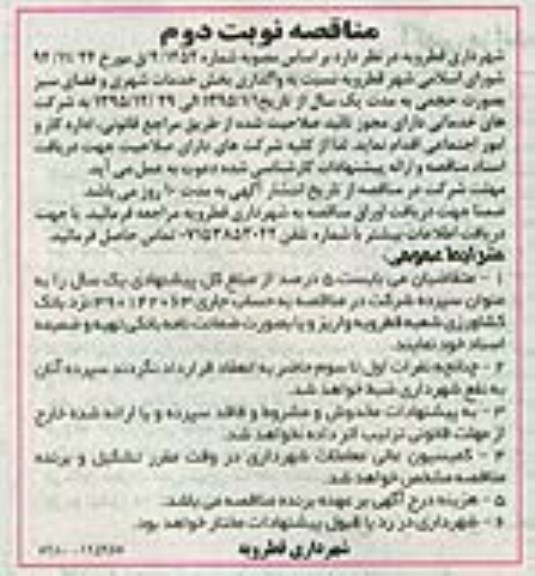 مناقصه نوبت دوم
شهرداری قطرویه در نظر دارد بر اساس مصوبه شماره مورخ
شورای اسلامی شهر قطرویه نسبت به واگذاری بخش خدمات شهری و فضای سبز
بصورت حجمی به مدت یک سال از تاریخ ۱۳۹۵/۱/۱ الی ۱۳۹۵/۱۲/۲۹ به شرکت
های خدماتی دارای مجوز تائید صلاحیت شده از طریق مراجع قانونی، اداره کار و
امور اجتماعی اقدام نماید. لذا از کلیه شرکت های دارای صلاحیت جهت دریافت
اسناد مناقصه و ارائه پیشنهادات کارشناسی شده دعوت به عمل می آید.
مهلت شرکت در مناقصه از تاریخ انتشار آگهی به مدت ۱۰ روز می باشد.
ضمنا جهت دریافت اوراق مناقصه به شهرداری قطرویه مراجعه فرمائید. یا جهت
دریافت اطلاعات بیشتر با شماره تلفن ۰۷۱۵۳۸۵۳۰۲۲ تماس حاصل فرمائید.
شرایط عمومی:
۱ - متقاضیان می بایست ۵ درصد از مبلغ کل پیشنهادی یک سال را به
عنوان سپرده شرکت در مناقصه به حساب جاری نزد بانک
کشاورزی شعبه قطرویه واریز و یا بصورت ضمانت نامه بانکی تهیه و ضمیمه
اسناد خود نمایند.
۲ - چنانچه نفرات اول تا سوم حاضر به انعقاد قرارداد نگردند سپرده آنان
به نفع شهرداری ضبط خواهد شد.
۳ - به پیشنهادات مخدوش و مشروط و فاقد سپرده و یا ارائه شده خارج
از مهلت قانونی ترتیب اثر داده نخواهد شد.
۴ - کمیسیون عالی معاملات شهرداری در وقت مقرر تشکیل و برنده
مناقصه مشخص خواهد شد.
۵ - هزینه درج آگهی بر عهده برنده مناقصه می باشد.
۶ - شهرداری در رد یا قبول پیشنهادات مختار خواهد بود.
شهرداری قطرویه